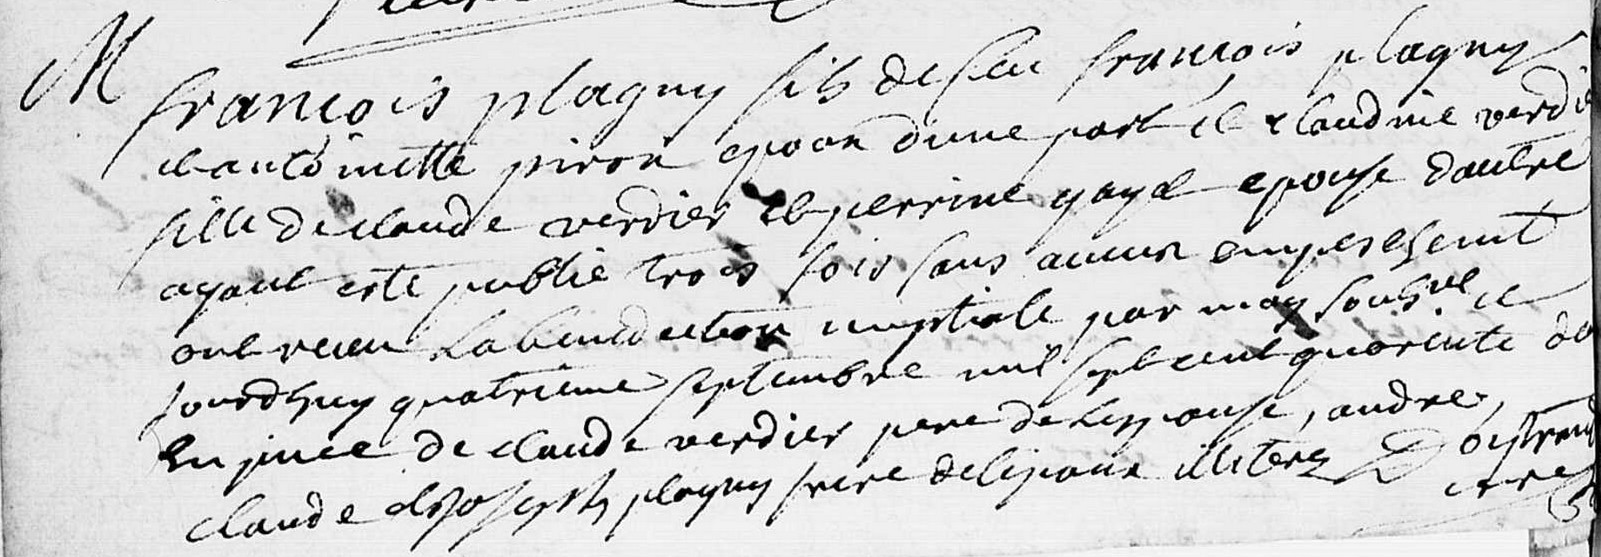 M
françois plagny fils de feu françois plagny
et antoinette piron epoux dune part et claudine verdie
fille de claude verdier et perrine gayet epouse dautre
ayant esté publié trois fois sans aucun empeschemt
ont receu la benediction nuptiale par moy soubsné ce
jourdhuy quatrieme septembre mil sept cent quarente do
En pnce de claude verdier pere de lespouse, andré,
claude et joseph plagny frere de lepoux illiterez
curé